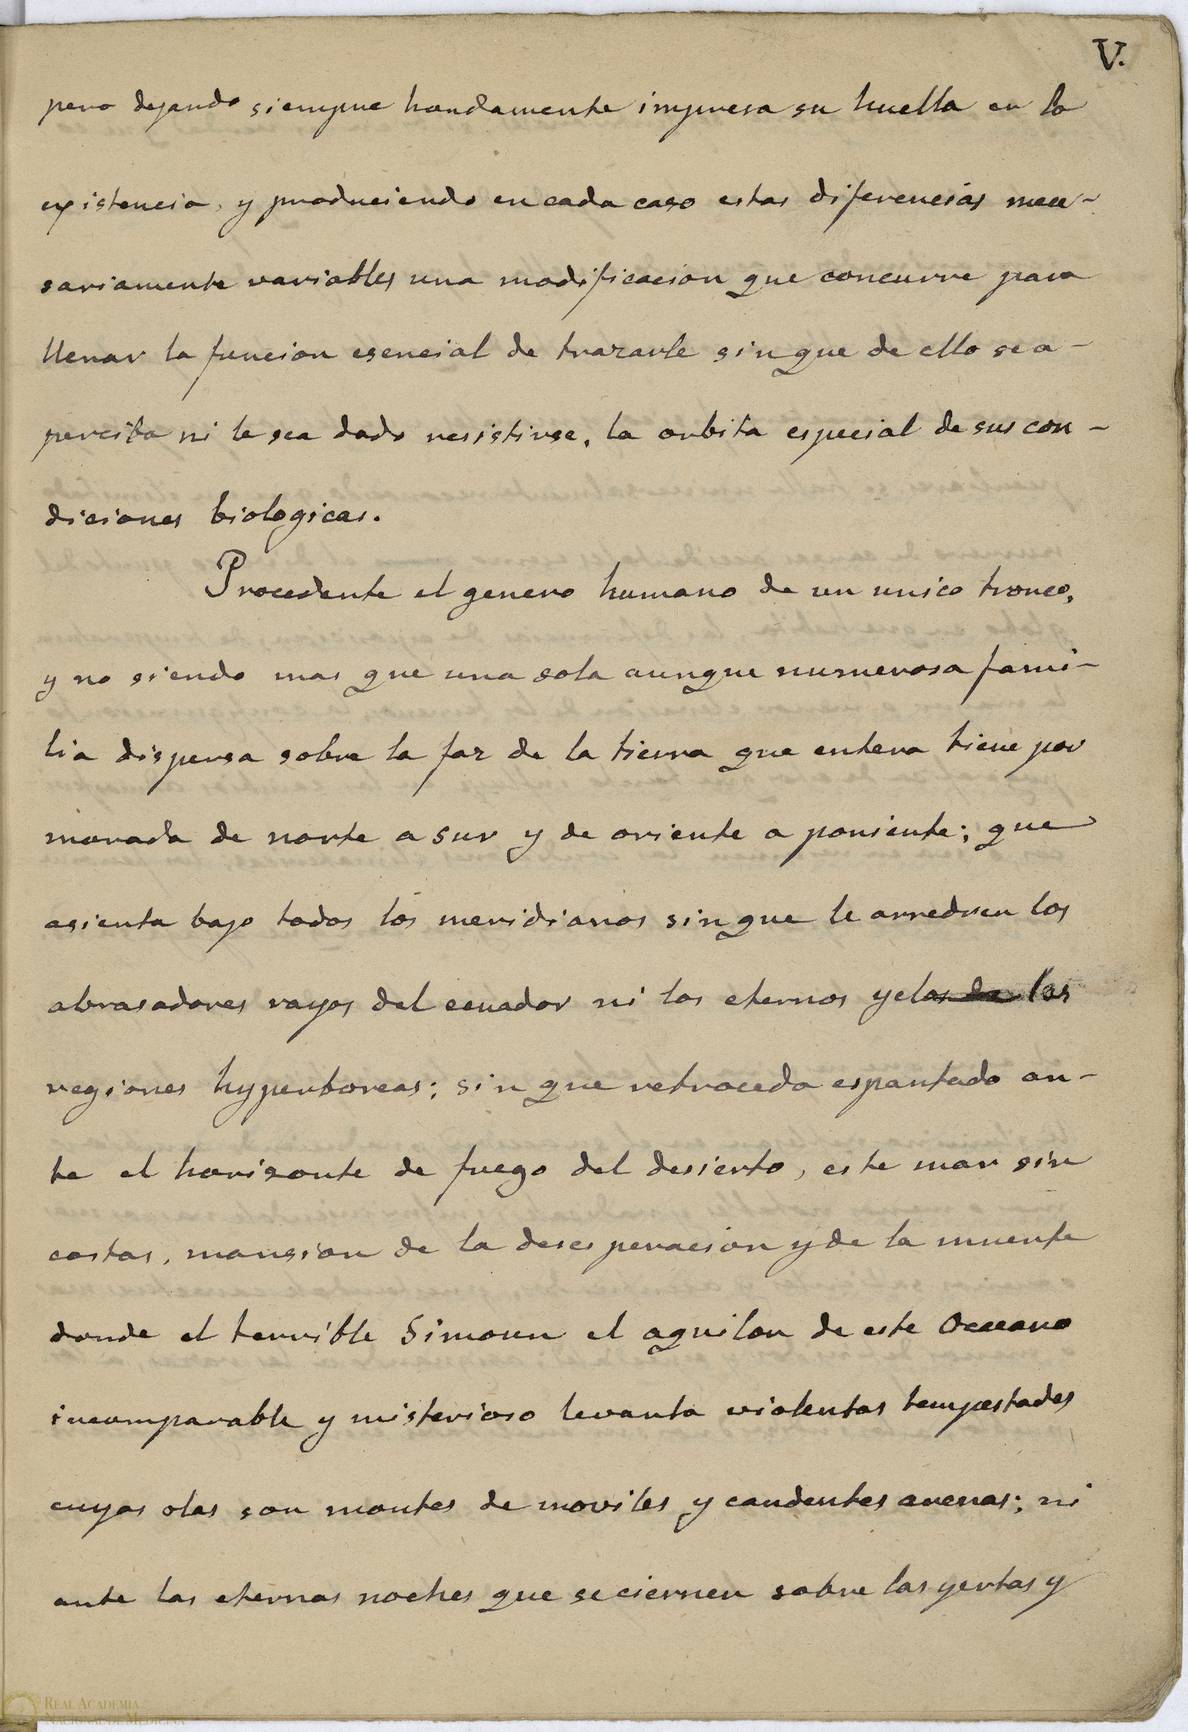 V.
pero dejando siempre hondamente impresa su huella en la
existencia, y produciendo en cada caso estas diferencias nece-
sariamente variables una modificacion que concurre para
llenar la funcion esencial de trazarle sin que de ello se a-
perciba ni le sea dado resistirse, la orbita especial de sus con-
diciones biologicas.
Procedente el genero humano de un unico tronco,
y no siendo mas que una sola aunque numerosa fami-
lia dispersa sobre la faz de la tierra que entera tiene por
morada de norte a sur y de oriente a poniente; que
asienta bajo todos los meridianos sin que le arredren los
abrasadores rayos del ecuador ni los eternos yelos de las
regiones hyperboreas; sin que retroceda espantado an-
te el horisonte de fuego del desierto, este mar sin
costas, mansion de la desesperacion y de la muerte
donde el terrible Simoun el aquilon de este Occeano
incomparable y misterioso levanta violentas tempestades
cuyas olas son montes de moviles y candentes arenas; ni
ante las eternas noches que se ciernen sobre las yertas y
REAL ACADEMIA
NACIONAL DE MEDICINA